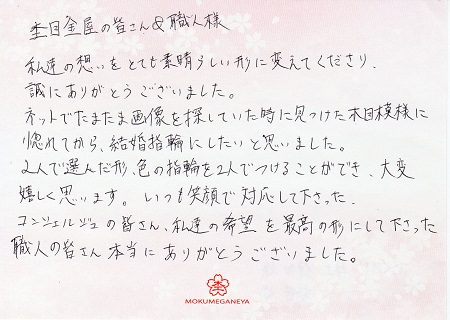 杢目金屋の皆さん&職人様
私達の想いをとても素晴らしい形に変えてくださり、
誠にありがとうございました。
ネットでたまたま画像を探していた時に見つけた木目模様に
惚れてから、結婚指輪にしたいと思いました。
2人で選んだ形、色の指輪を2人でつけることができ、大変
嬉しく思います。いつも笑顔で対応して下さった
コンシェルジュの皆さん、私達の希望を最高の形にして下さった
職人の皆さん本当にありがとうございました。
MOKUMEGANEYA